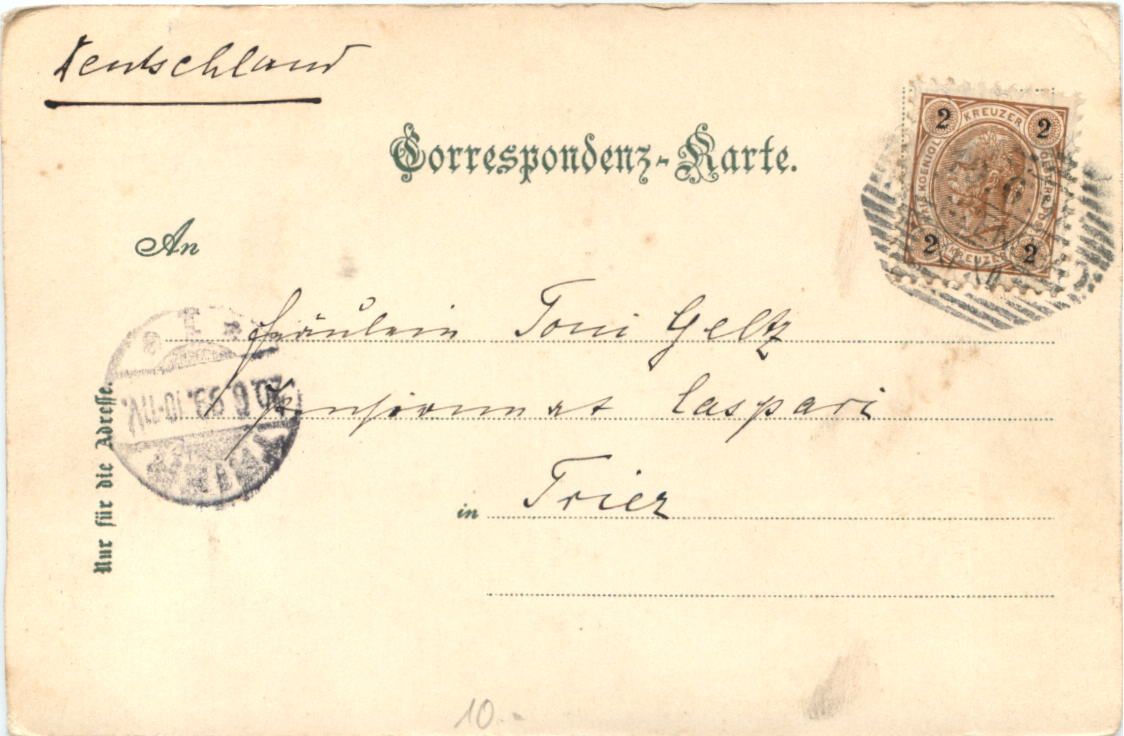 Deutschland
Correspondenz-Karte.
An
Fräulein Toni Geltz
Pensionnat Caspari
in Trier
Nur für die Adresse.
2 KREUZER 2
2 KREUZER 2
20.6.99.10-11V.
10.-